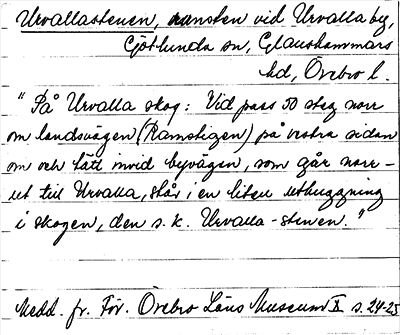 Urvallastenen, runsten vid Urvalla by,
Götlunda sn, Glanshammars
hd, Örebro l.
"På Urvalla skog: Vid pass 50 steg norr
om landsvägen (Ramstigen) på vestra sidan
om och tätt invid byvägen, som går norr-
ut till Urvalla, står i en liten uthuggning
i skogen, den s.k. Urvalla-stenen."
Medd. fr. För. Örebro Läns Museum X s. 24-25